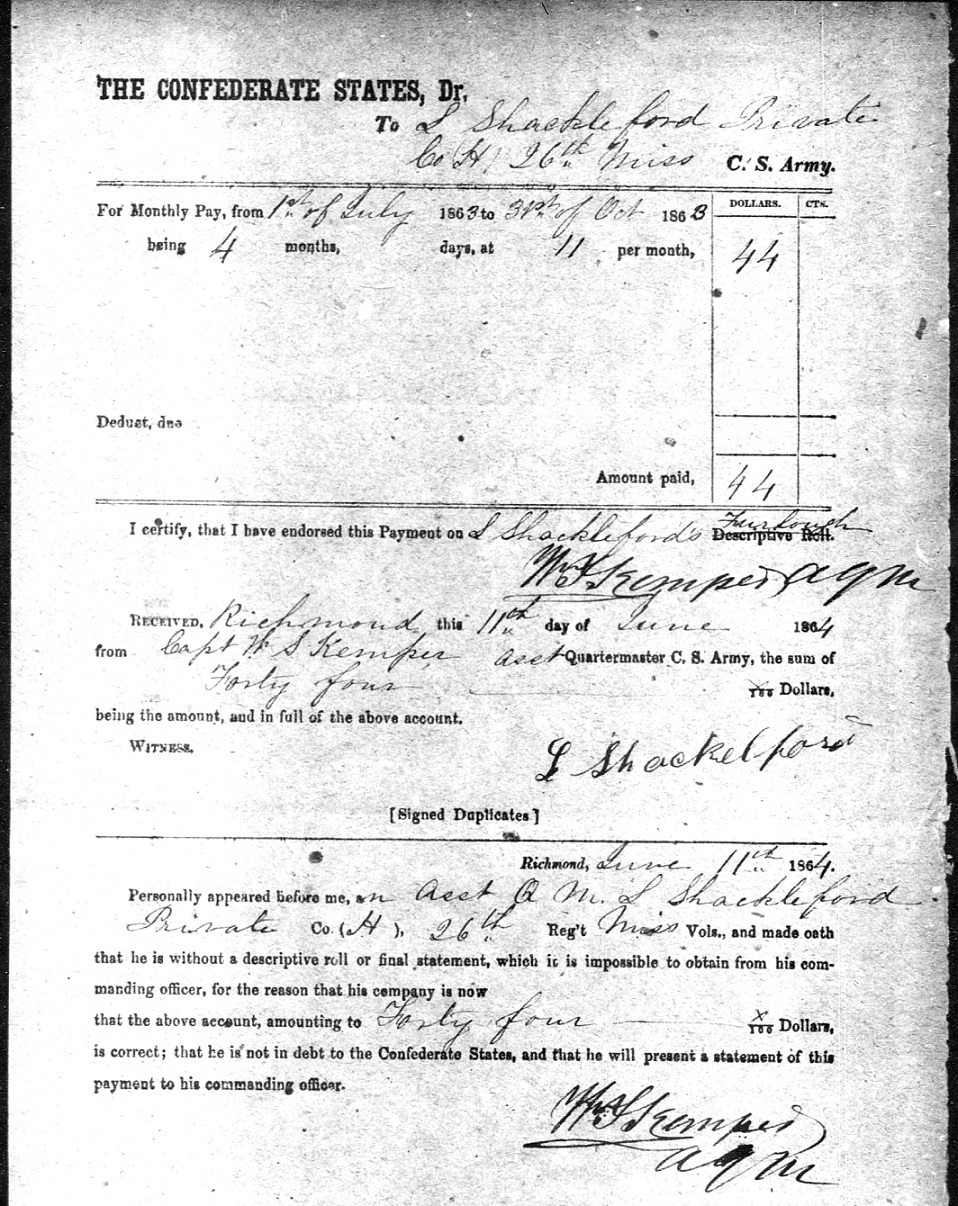 THE CONFEDERATE STATES, Dr.
To L Shackleford Private
Co H, 26th Miss C. S. Army.
DOLLARS. CTS.
For Monthly Pay, from 1st of July 1863 to 31st of Oct 1863
being 4 months, days, at 11 per month, 44
Deduct, due
Amount paid, 44
I certify, that I have endorsed this Payment on L Shackleford's Furlough Descriptive Roll.
Wm S Kemper AQM
RECEIVED, Richmond this 11th day of June 1864
from Capt W S Kemper Asst Quartermaster C. S. Army, the sum of
Forty four x/100 Dollars,
being the amount, and in full of the above account.
WITNESS,
L Shackelford
[Signed Duplicates]
Richmond, June 11th 1864.
Personally appeared before me, an Asst Q M. L Shackleford
Private Co. (H), 26th Reg't Miss Vols., and made oath
that he is without a descriptive roll or final statement, which it is impossible to obtain from his com-
manding officer, for the reason that his company is now
that the above account, amounting to Forty four x/100 Dollars,
is correct; that he is not in debt to the Confederate States, and that he will present a statement of this
payment to his commanding officer.
Wm S Kemper
AQM